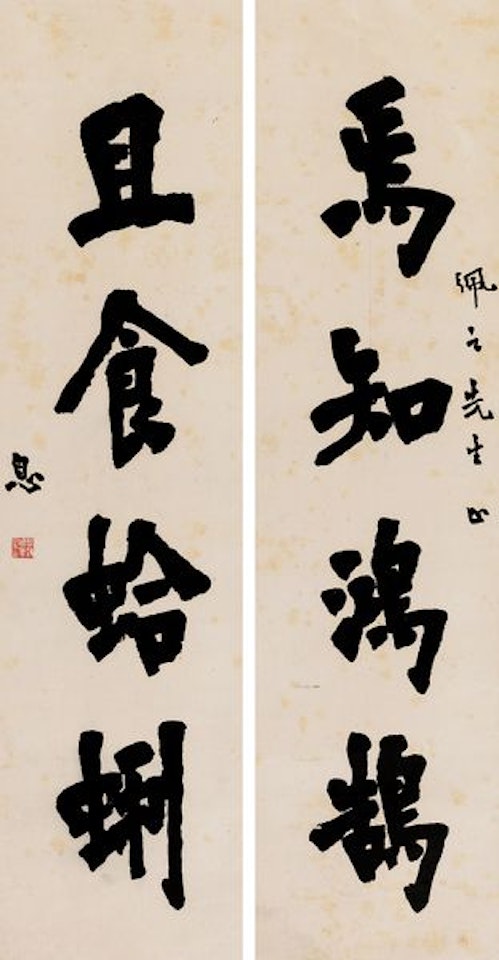 焉知鴻鵠
珮之先生正
且食蛤蜊
息